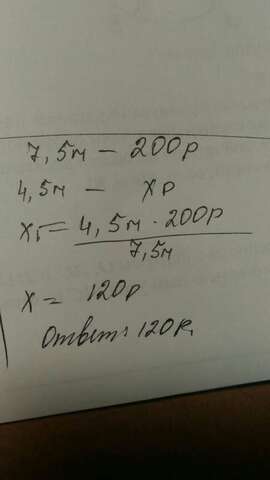 7,5м — 200р
4,5м — хр
х = 4,5м · 200р
7,5м
х = 120р
Ответ: 120р.